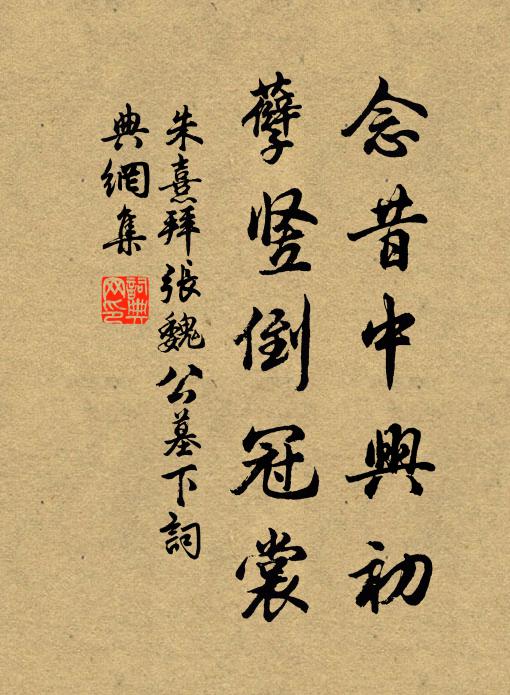 念昔中興初
孽竪倒冠裳
朱熹拜張魏公墓下詞
典網集
詞典網印